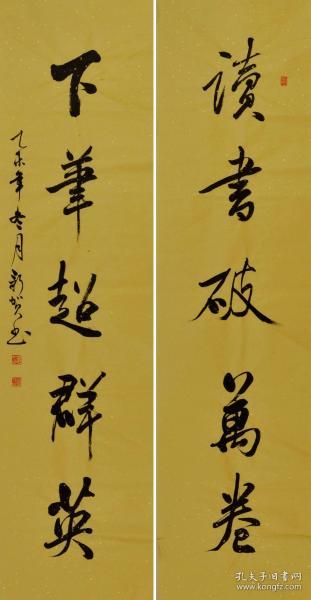 讀書破萬卷
下筆超群英
乙未年冬月新賀书
孔夫子旧书网